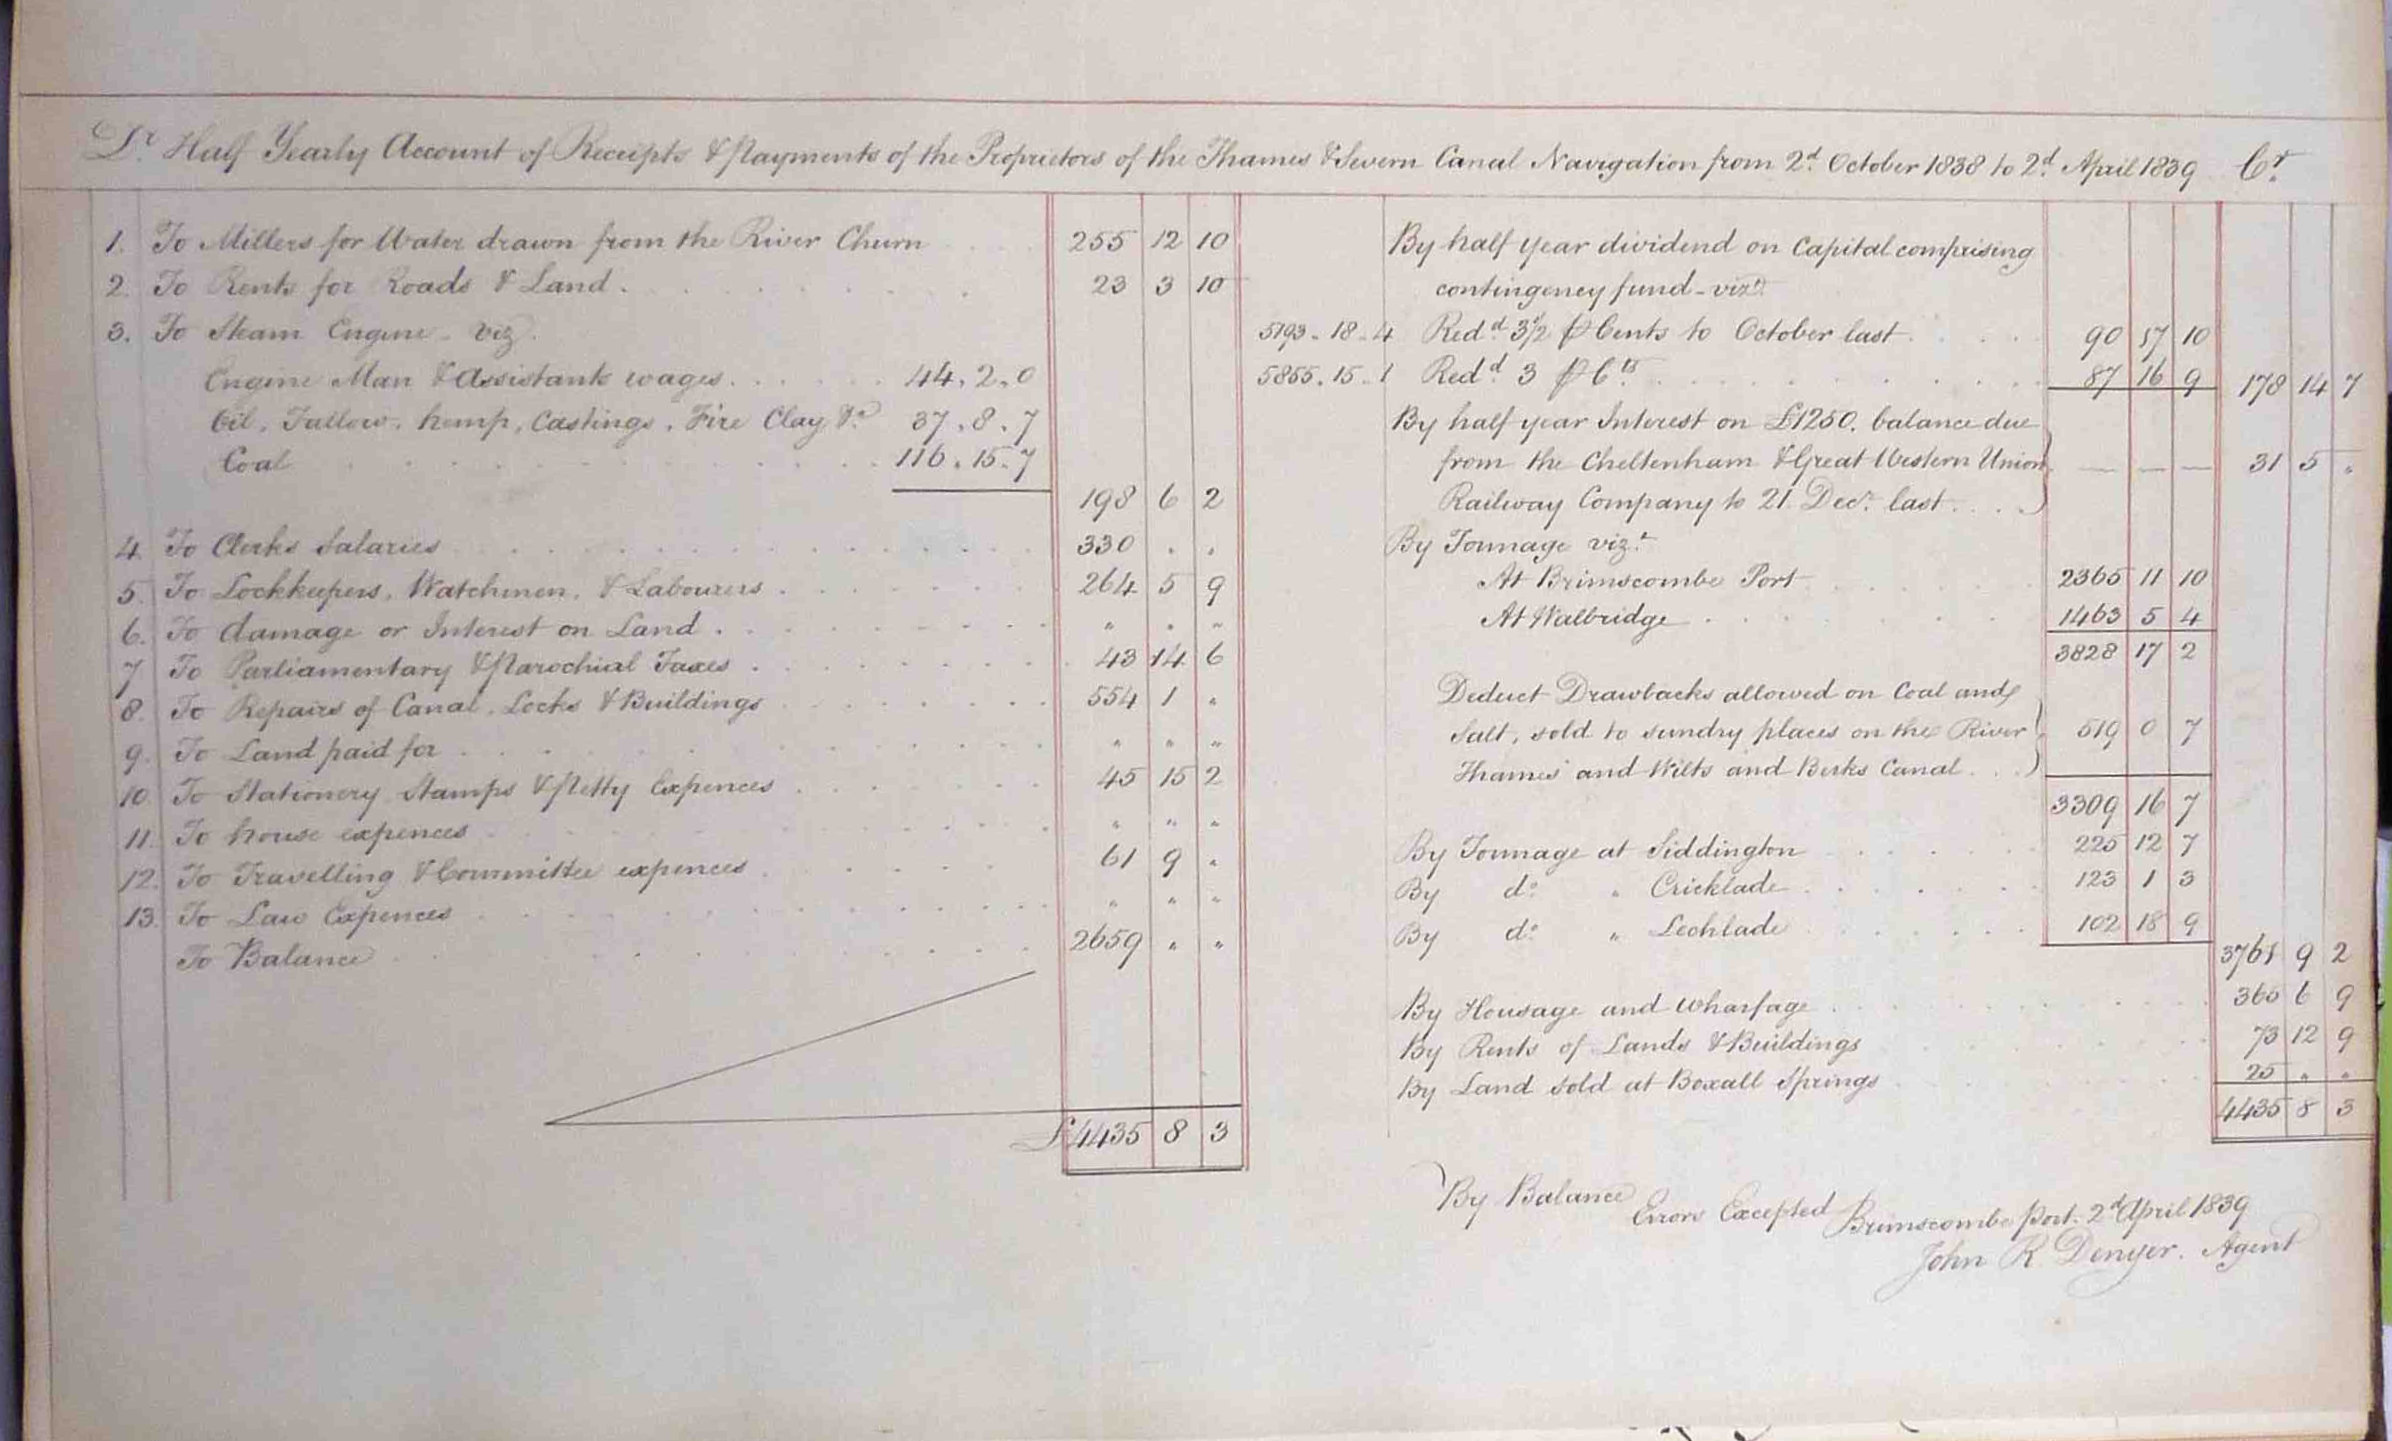 Dr. Half Yearly Account of Receipts & Payments of the Proprietors of the Thames & Severn Canal Navigation from 2d. October 1838 to 2d. April 1839 Cr.
1. To Millers for Water drawn from the River Churn 255 12 10
2. To Rents for Roads & Land 23 3 10
3. To Steam Engine - viz.
Engine Man & Assistants wages 44.2.0
Oil, Tallow, hemp, Castings, Fire Clay &c 37.8.7
Coal 116.15.7
198 6 2
4. To Clerks Salaries 330 . .
5. To Lockkeepers, Watchmen, & Labourers 264 5 9
6. To damage or Interest on Land " . "
7 To Parliamentary & Parochial Taxes 43 14 6
8. To Repairs of Canal, Locks & Buildings 554 1 "
9. To Land paid for " " "
10. To Stationery Stamps & Petty Expences 45 15 2
11. To house expences " " "
12. To Travelling & Committee expences 61 9 "
13. To Law Expences " " "
To Balance 2659 " "
£4435 8 3
By half year dividend on Capital comprising
contingency fund - vizt.
5193.18.4 Redd. 3½ ⅌ Cents to October last 90 17 10
5855.15.1 Redd. 3 ⅌ Cts. 87 16 9 178 14 7
By half year Interest on £1250. balance due
from the Cheltenham & Great Western Union — — — 31 5 "
Railway Company to 21 Decr. last
By Tonnage vizt.
At Brimscombe Port 2365 11 10
At Walbridge 1463 5 4
3828 17 2
Deduct Drawbacks allowed on Coal and
Salt, sold to sundry places on the River 519 0 7
Thames and Wilts and Berks Canal
3309 16 7
By Tonnage at Siddington 225 12 7
By do. " Cricklade 123 1 3
By do. " Lechlade 102 18 9
3761 9 2
By Housage and wharfage 365 6 9
By Rents of Lands & Buildings 73 12 9
By Land sold at Boxall Springs 25 " "
4435 8 3
By Balance
Errors Excepted Brimscombe Port. 2d April 1839
John R Denyer. Agent